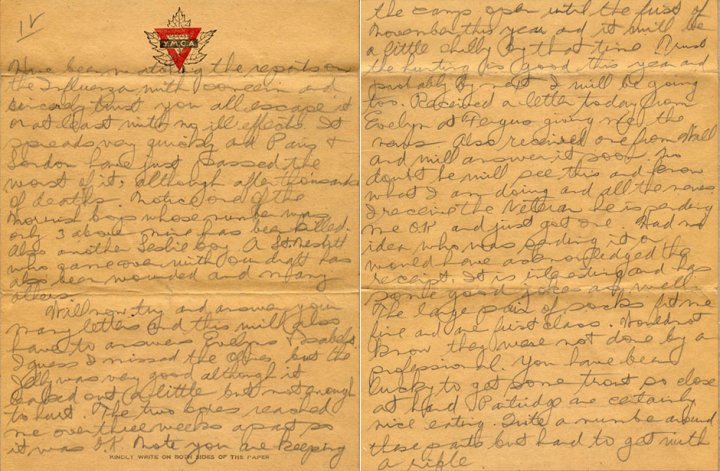 IV
Y.M.C.A
Have been noting the reports on
the Influenza with concern and
sincerely trust you all escape it
or at least with no ill effects. It
spreads very quickly and Paris &
London have just passed the
worst of it, although after thousands
of deaths. Notice one of the
boys whose number was
only 3 above mine has been killed.
Also another Leslie boy A St. Nesbitt
who came over with our draft has
also been wounded and many
others.
Will now try and answer your
many letters and this will also
have to answer Evelyns & Isabels.
I guess I missed the but the
Jelly was very good although it
leaked out a little but not enough
to hurt. The two boxes reached
me over three weeks apart so
it was O.K. Note you are keeping
KINDLY WRITE ON BOTH SIDES OF THE PAPER
the camp open until the first of
November this year and it will be
a little chilly by that time. Trust
the hunting is good this year and
probably by next I will be going
too. Received a letter today from
Evelyn at Fergus giving me the
news. Also received one from Will
and will answer it soon. No
doubt he will see this and know
what I am doing and all the news.
I receive the Veteran he is sending
me O.K. and just got one. Had no
idea who was sending it or
would have acknowledged the
receipt. It is interesting and has
some good jokes as well.
The large pair of socks fit me
fine and are first class. Would not
know they were not done by a
professional. You have been
lucky to get some trout so close
at hand. Patridge are certainly
nice eating. Quite a number around
these parts but hard to get with
a rifle.